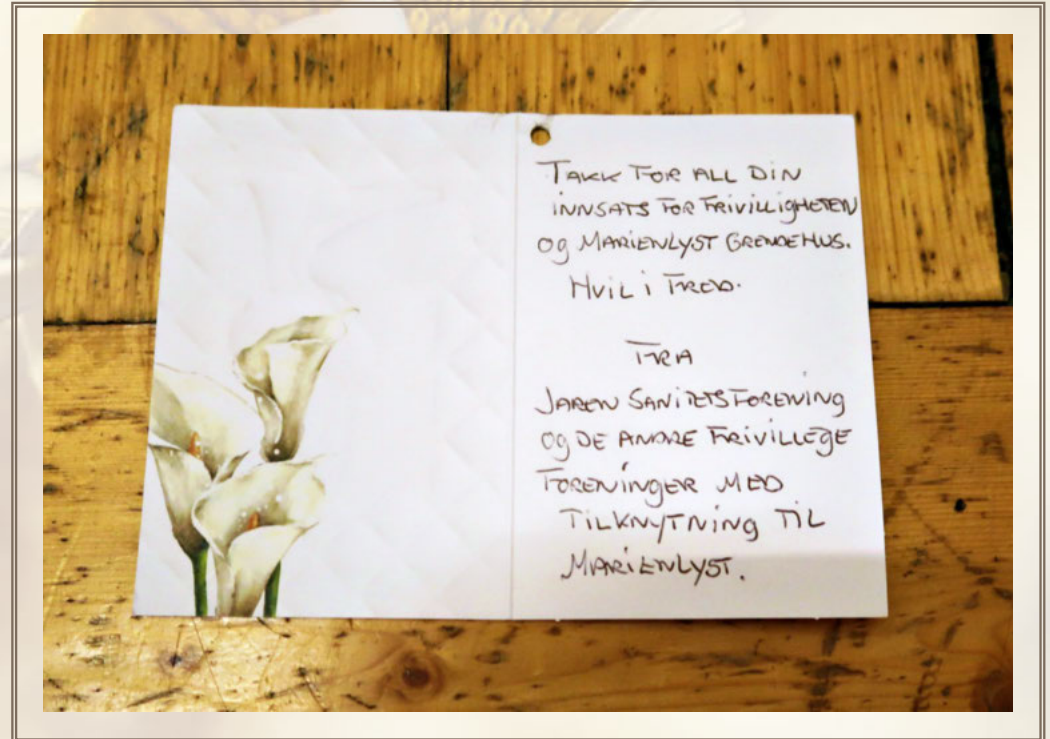 TAKK FOR ALL DIN
INNSATS FOR FRIVILLIGHETEN
og MARIENLYST GRENDEHUS.
HVIL i FRED.
FRA
JAREN SANITETSFORENING
og DE ANDRE FRIVILLEGE
FORENINGER MED
TILKNYTNING TIL
MARIENLYST.